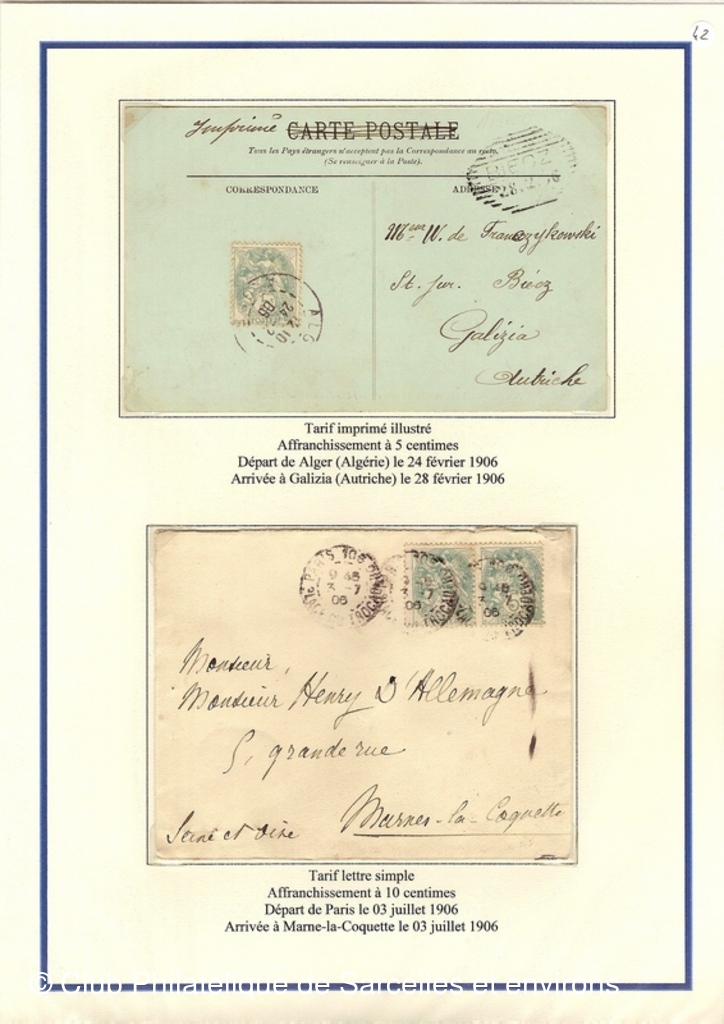 42
Imprimé CARTE POSTALE
Tous les Pays étrangers n'acceptent pas la Correspondance au recto.
(Se renseigner à la Poste).
CORRESPONDANCE
ADRESSE
BIECZ
28.2.06
Mme W. de Franczykowski
St. sur. Biécz
Galizia
Autriche
Tarif imprimé illustré
Affranchissement à 5 centimes
Départ de Alger (Algérie) le 24 février 1906
Arrivée à Galizia (Autriche) le 28 février 1906
PARIS 106
9 45
3 -7
06
Monsieur,
Monsieur Henry D'Allemagne
5, grande rue
Marnes-la-Coquette
Seine et Oise
Tarif lettre simple
Affranchissement à 10 centimes
Départ de Paris le 03 juillet 1906
Arrivée à Marne-la-Coquette le 03 juillet 1906
© Club Philatélique de Sarcelles et environs